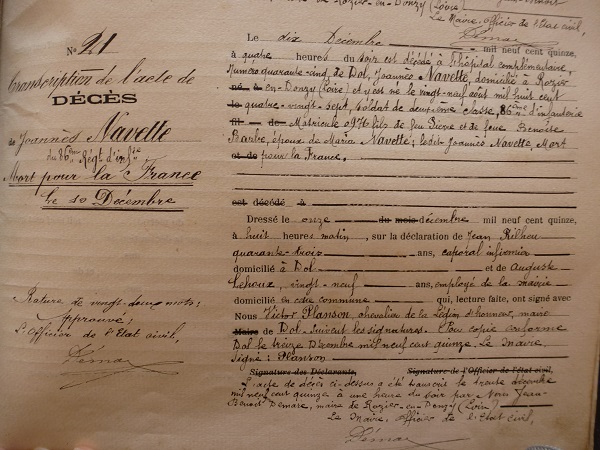 de Rozier-en-Donzy (Loire)
Le Maire, officier de l'Etat civil,
Démare
N° 21
transcription de l'acte de
DÉCÈS
de Joannès Navette
du 86ème Régt d'infie
Mort pour la France
Le 10 Décembre
Rature de vingt-deux mots;
Approuvé;
L'Officier de l'Etat civil,
Démare
Le dix Décembre mil neuf cent quinze,
à quatre heures du soir est décédé à l'hôpital complémentaire
Numéro quarante-cinq de Dol, Joannès Navette, domicilié à Rozier
né à en-Donzy (Loire) et y est né le vingt-neuf août mil huit cent
le quatre-vingt sept, soldat de deuxième classe, 86ème d'infanterie
fil de Matricule 0976 fils de feu Pierre et de feue Benoite
Barbe, époux de Maria Navette; ledit Joannès Navette Mort
et de pour la France.
est décédé à
Dressé le onze du mois décembre mil neuf cent quinze,
à huit heures matin, sur la déclaration de Jean
quarante-trois ans, caporal infirmier
domicilié à Dol et de Auguste
Lehoux, vingt-neuf ans, employé de la mairie
domicilié en cette commune qui, lecture faite, ont signé avec
Nous Victor Planson, chevalier de la Légion d'honneur, maire
Maire de Dol. Suivent les signatures. Pour copie conforme
Dol le treize Décembre mil neuf cent quinze. Le Maire
signé: Planson
Signature des Déclarants, Signature de l'Officier de l'état civil,
L'acte de décès ci-dessus a été transcrit le trente décembre
mil neuf cent quinze à une heure du soir par Nous Jean-
Benoit Démare, maire de Rozier-en-Donzy (Loire)
Le Maire, officier de l'Etat civil,
Démare